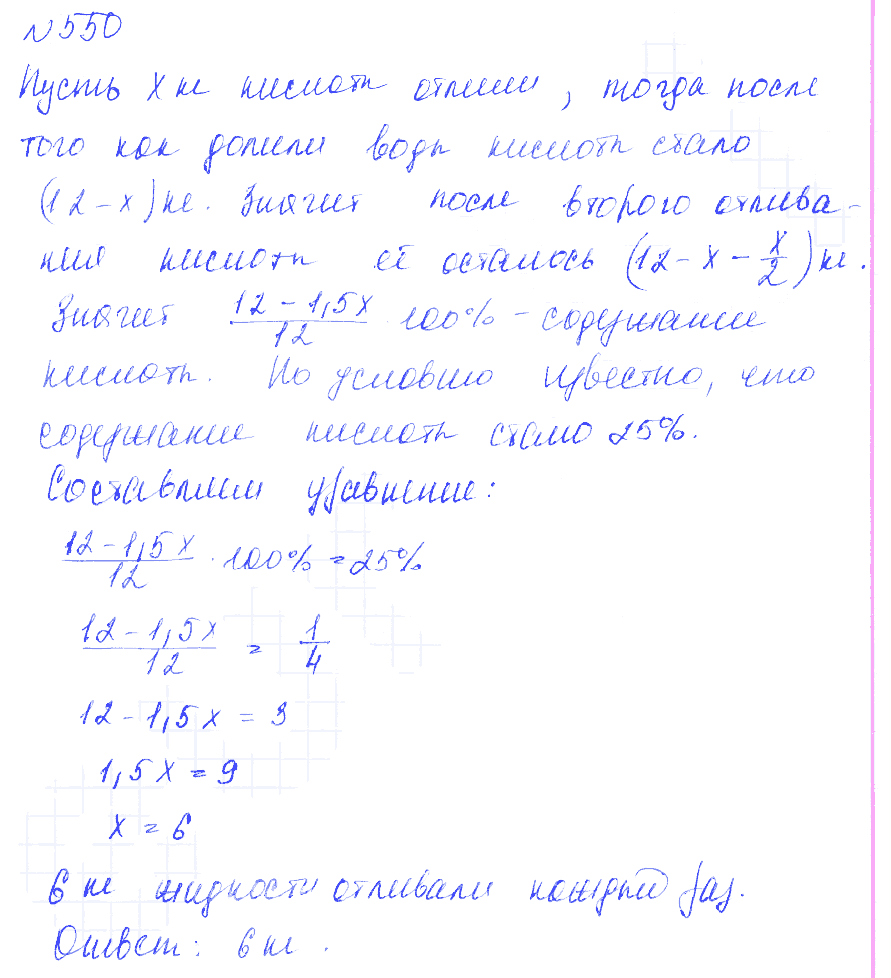 №550
Пусть x кг кислоты отлили, тогда после
того как долили воды кислоты стало
(12-x) кг. Значит после второго отлива-
ния кислоты её осталось (12 - x - x/2) кг.
Значит (12 - 1,5x)/12 · 100% - содержание
кислоты. По условию известно, что
содержание кислоты стало 25%.
Составляем уравнение:
(12 - 1,5x)/12 · 100% = 25%
(12 - 1,5x)/12 = 1/4
12 - 1,5x = 3
1,5x = 9
x = 6
6 кг жидкости отливали каждый раз.
Ответ: 6 кг.